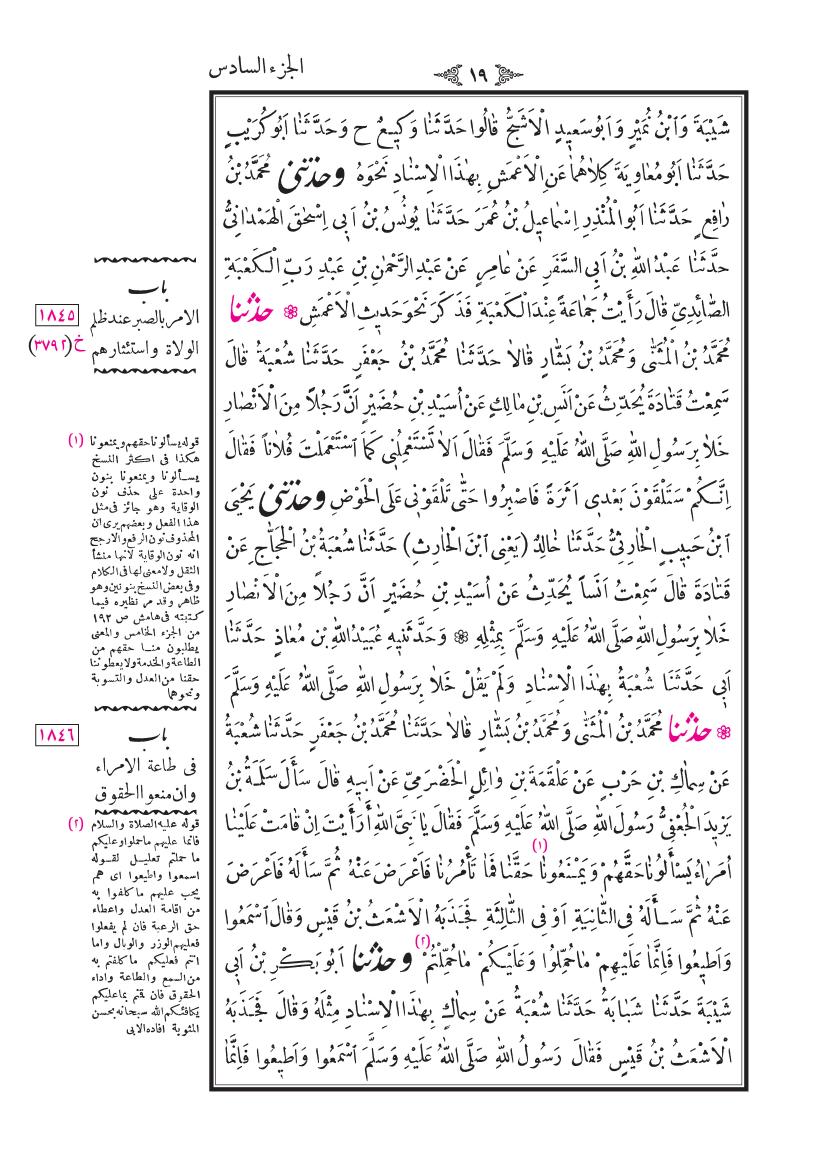 ١٩
الجزء السادس
شَيْبَةَ وَابْنُ نُمَيْرٍ وَاَبُو سَعِيدٍ الْاَشَجُّ قَالُوا حَدَّثَنَا وَكِيعٌ ح وَحَدَّثَنَا اَبُو كُرَيْبٍ
حَدَّثَنَا اَبُو مُعَاوِيَةَ كِلَاهُمَا عَنِ الْاَعْمَشِ بِهٰذَا الْاِسْنَادِ نَحْوَهُ وحدثنى مُحَمَّدُ بْنُ
رَافِعٍ حَدَّثَنَا اَبُو الْمُنْذِرِ اِسْمَاعِيلُ بْنُ عُمَرَ حَدَّثَنَا يُونُسُ بْنُ اَبِى اِسْحٰقَ الْهَمْدَانِىُّ
حَدَّثَنَا عَبْدُ اللهِ بْنُ اَبِى السَّفَرِ عَنْ عَامِرٍ عَنْ عَبْدِ الرَّحْمٰنِ بْنِ عَبْدِ رَبِّ الْكَعْبَةِ
الصَّائِدِىِّ قَالَ رَأَيْتُ جَمَاعَةً عِنْدَ الْكَعْبَةِ فَذَكَرَ نَحْوَ حَدِيثِ الْاَعْمَشِ ۞ حدثنا
مُحَمَّدُ بْنُ الْمُثَنّٰى وَمُحَمَّدُ بْنُ بَشَّارٍ قَالَا حَدَّثَنَا مُحَمَّدُ بْنُ جَعْفَرٍ حَدَّثَنَا شُعْبَةُ قَالَ
سَمِعْتُ قَتَادَةَ يُحَدِّثُ عَنْ اَنَسِ بْنِ مَالِكٍ عَنْ اُسَيْدِ بْنِ حُضَيْرٍ اَنَّ رَجُلاً مِنَ الْاَنْصَارِ
خَلَا بِرَسُولِ اللهِ صَلَّى اللهُ عَلَيْهِ وَسَلَّمَ فَقَالَ اَلَا تَسْتَعْمِلُنِى كَمَا اسْتَعْمَلْتَ فُلَاناً فَقَالَ
اِنَّكُمْ سَتَلْقَوْنَ بَعْدِى اَثَرَةً فَاصْبِرُوا حَتّٰى تَلْقَوْنِى عَلَى الْحَوْضِ وحدثنى يَحْيَى
ابْنُ حَبِيبٍ الْحَارِثِىُّ حَدَّثَنَا خَالِدٌ (يَعْنِى ابْنَ الْحَارِثِ) حَدَّثَنَا شُعْبَةُ بْنُ الْحَجَّاجِ عَنْ
قَتَادَةَ قَالَ سَمِعْتُ اَنَساً يُحَدِّثُ عَنْ اُسَيْدِ بْنِ حُضَيْرٍ اَنَّ رَجُلاً مِنَ الْاَنْصَارِ
خَلَا بِرَسُولِ اللهِ صَلَّى اللهُ عَلَيْهِ وَسَلَّمَ بِمِثْلِهِ ۞ وَحَدَّثَنِيهِ عُبَيْدُ اللهِ بْنِ مُعَاذٍ حَدَّثَنَا
اَبِى حَدَّثَنَا شُعْبَةُ بِهٰذَا الْاِسْنَادِ وَلَمْ يَقُلْ خَلَا بِرَسُولِ اللهِ صَلَّى اللهُ عَلَيْهِ وَسَلَّمَ
۞ حدثنا مُحَمَّدُ بْنُ الْمُثَنّٰى وَمُحَمَّدُ بْنُ بَشَّارٍ قَالَا حَدَّثَنَا مُحَمَّدُ بْنُ جَعْفَرٍ حَدَّثَنَا شُعْبَةُ
عَنْ سِمَاكِ بْنِ حَرْبٍ عَنْ عَلْقَمَةَ بْنِ وَائِلٍ الْحَضْرَمِىِّ عَنْ اَبِيهِ قَالَ سَأَلَ سَلَمَةُ بْنُ
يَزِيدَ الْجُعْفِىُّ رَسُولَ اللهِ صَلَّى اللهُ عَلَيْهِ وَسَلَّمَ فَقَالَ يَا نَبِىَّ اللهِ أَرَأَيْتَ اِنْ قَامَتْ عَلَيْنَا
اُمَرَاءُ يَسْأَلُونَا حَقَّهُمْ وَيَمْنَعُونَا (١) حَقَّنَا فَمَا تَأْمُرُنَا فَاَعْرَضَ عَنْهُ ثُمَّ سَأَلَهُ فَاَعْرَضَ
عَنْهُ ثُمَّ سَأَلَهُ فِى الثَّانِيَةِ اَوْ فِى الثَّالِثَةِ فَجَذَبَهُ الْاَشْعَثُ بْنُ قَيْسٍ وَقَالَ اسْمَعُوا
وَاَطِيعُوا فَاِنَّمَا عَلَيْهِمْ مَا حُمِّلُوا وَعَلَيْكُمْ مَا حُمِّلْتُمْ (٢) وحدثنا اَبُو بَكْرِ بْنُ اَبِى
شَيْبَةَ حَدَّثَنَا شَبَابَةُ حَدَّثَنَا شُعْبَةُ عَنْ سِمَاكٍ بِهٰذَا الْاِسْنَادِ مِثْلَهُ وَقَالَ فَجَذَبَهُ
الْاَشْعَثُ بْنُ قَيْسٍ فَقَالَ رَسُولُ اللهِ صَلَّى اللهُ عَلَيْهِ وَسَلَّمَ اسْمَعُوا وَاَطِيعُوا فَاِنَّمَا
باب
الامر بالصبر عند ظلم
الولاة واستئثارهم
١٨٤٥
خ (٣٧٩٢)
(١) قوله يسألونا حقهم ويمنعونا
هكذا فى اكثر النسخ
يسألونا ويمنعونا بنون
واحدة على حذف نون
الوقاية وهو جائز فى مثل
هذا الفعل وبعضهم يرى ان
المحذوف نون الرفع والارجح
انه نون الوقاية لانها منشأ
الثقل ولا معنى لها فى الكلام
وفى بعض النسخ بنونين وهو
ظاهر وقد مر نظيره فيما
كتبته فى هامش ص ١٩٢
من الجزء الخامس والمعنى
يطلبون منا حقهم من
الطاعة والخدمة ولا يعطوننا
حقنا من العدل والتسوية
ونحوها
باب
فى طاعة الامراء
وان منعوا الحقوق
١٨٤٦
(٢) قوله عليه الصلاة والسلام
فانما عليهم ماحملوا وعليكم
ماحملتم تعليل لقوله
اسمعوا واطيعوا اى هم
يجب عليهم ما كلفوا به
من اقامة العدل واعطاء
حق الرعية فان لم يفعلوا
فعليهم الوزر والوبال واما
انتم فعليكم ما كلفتم به
من السمع والطاعة واداء
الحقوق فان قمتم بما عليكم
يكافئكم الله سبحانه بحسن
المثوبة افاده الابى